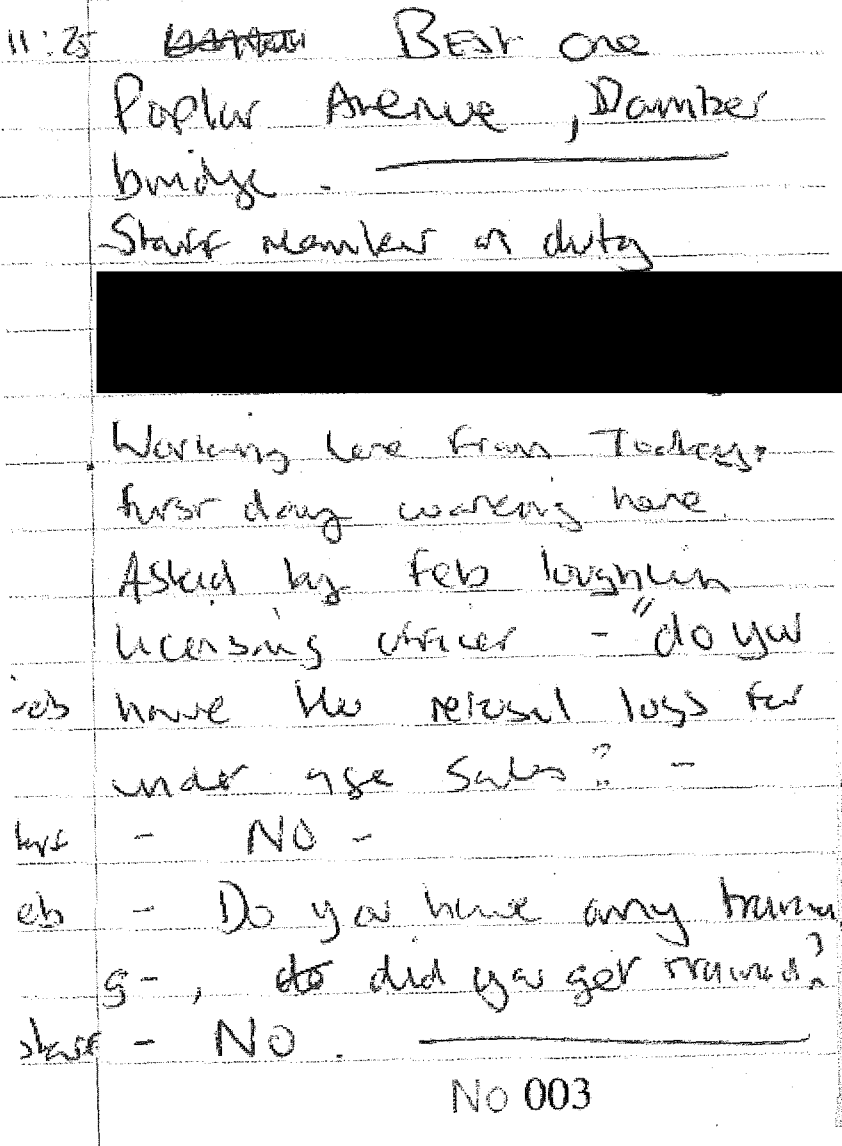 11:25 BEST one
Poplar Avenue, Damber
bridge.
Staff member on duty
Working here from Today.
first day working here.
Asked by Feb loughlin
licensing officer - "do you
have the refusal logs for
under age sales? -
- NO -
eb - Do you have any trainin
g-, do did you get trained?
staff - No.
No 003